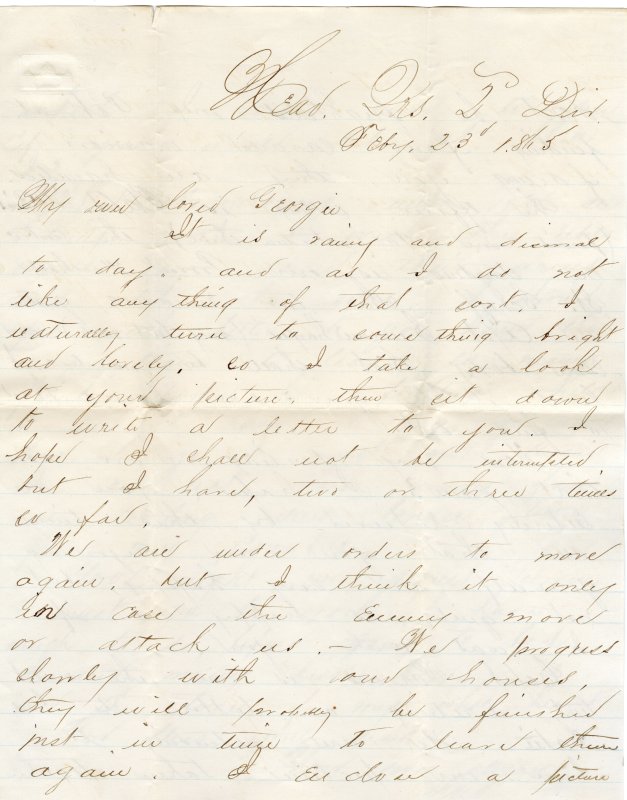 Head. Qrs. 2 Div.
Feby. 23d 1865
My own loved Georgie
It is rainy and dismal
to day. and as I do not
like any thing of that sort. I
naturally turn to some thing bright
and lovely, so I take a look
at your picture, then sit down
to write a letter to you. I
hope I shall not be interrupted
but I have, two or three times
so far.
We are under orders to move
again. but I think it only
in case the Enemy move
or attack us. — We progress
slowly with our houses,
they will probably be finished
just in time to leave them
again. I Enclose a picture